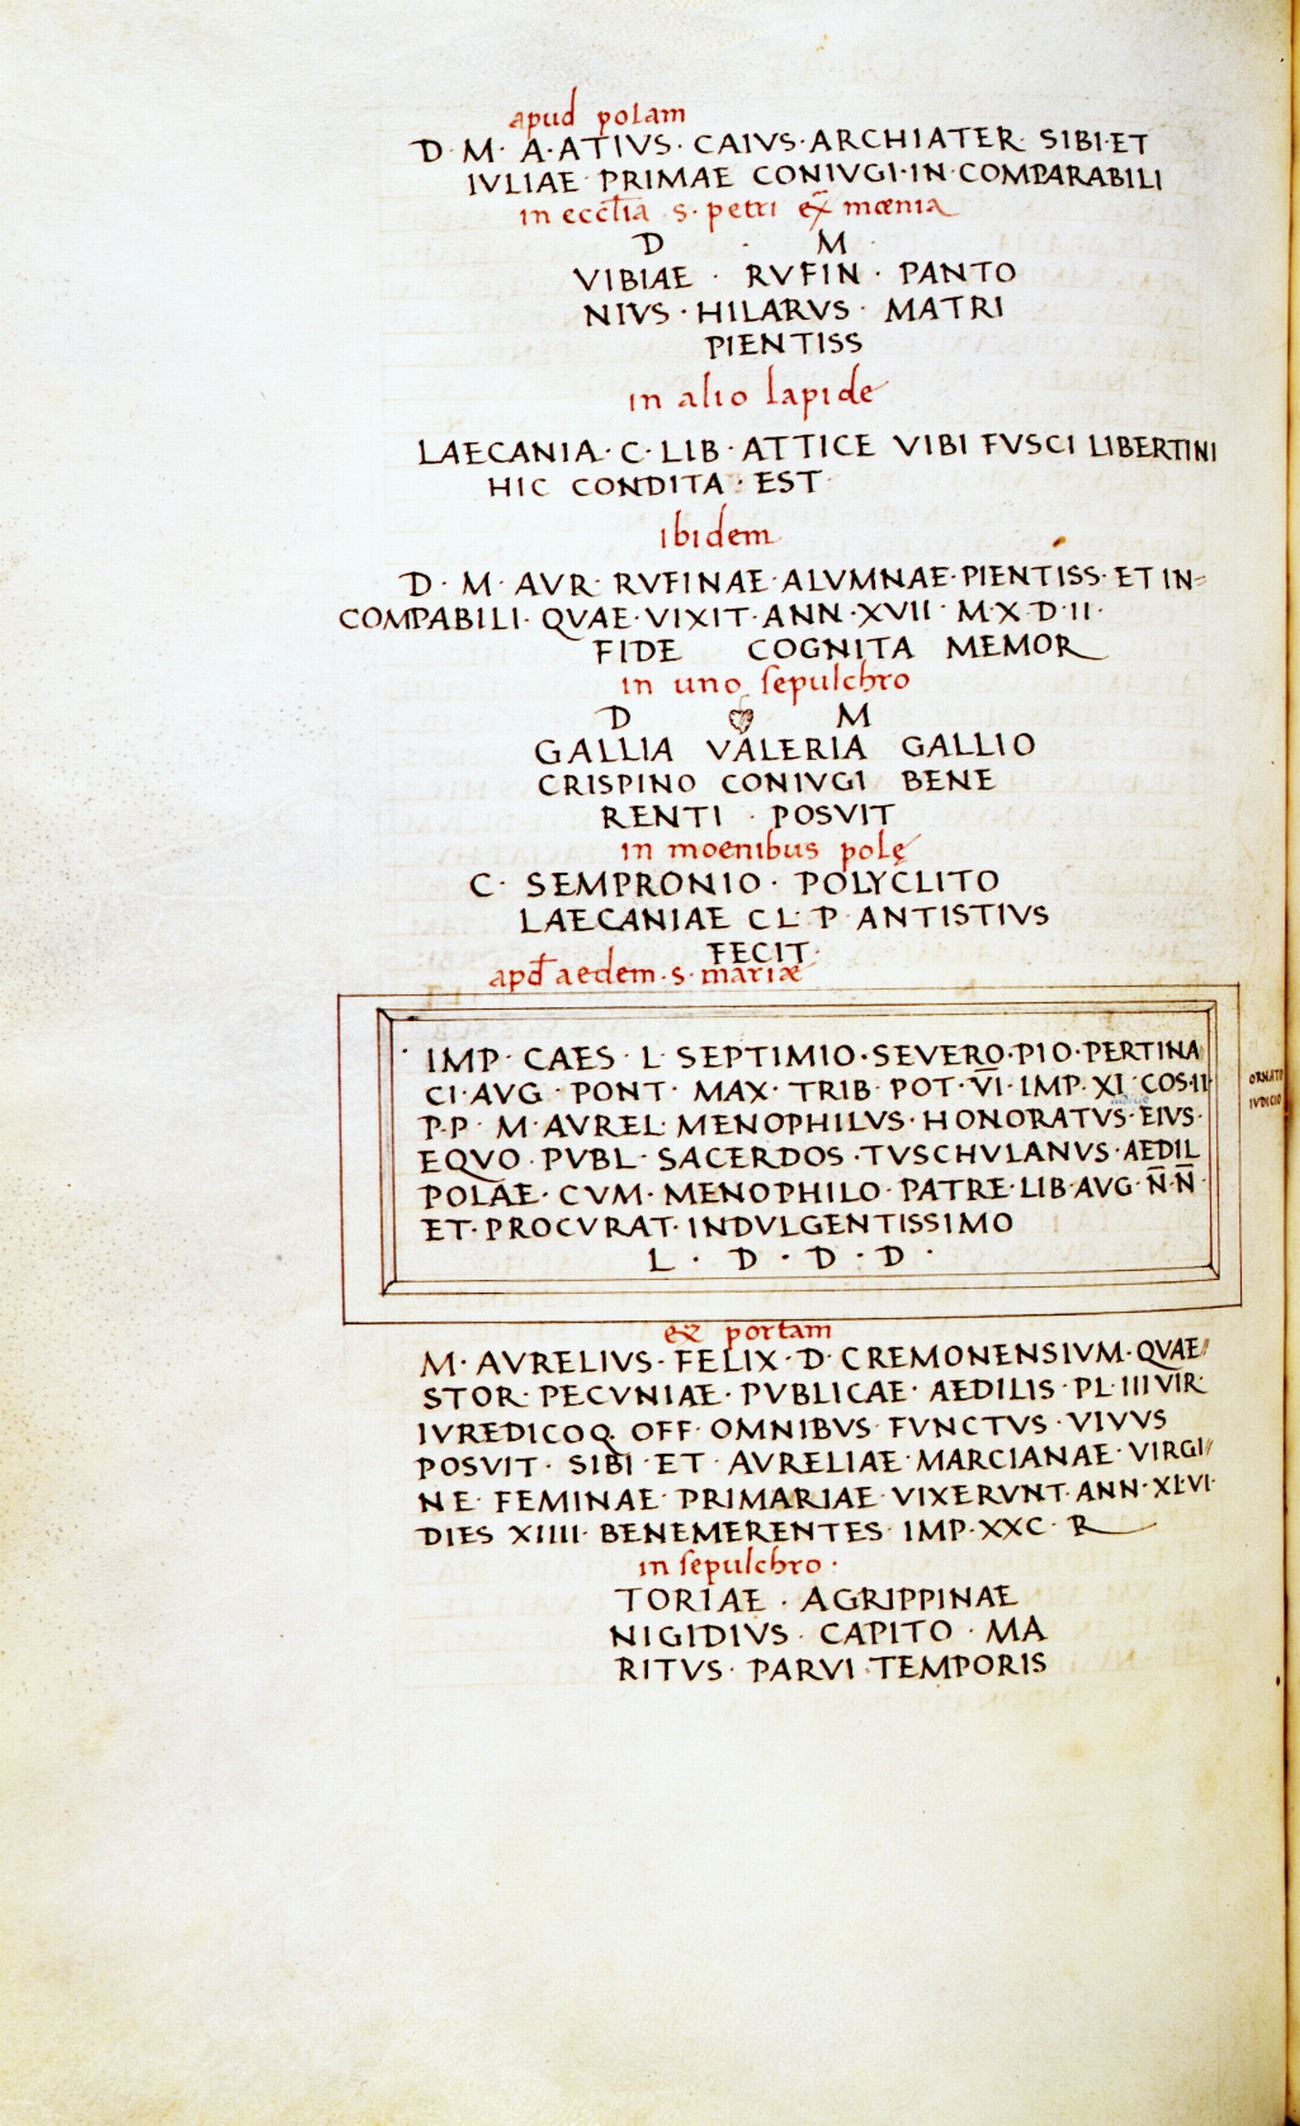 apud polam
D · M · A · ATIVS · CAIVS · ARCHIATER · SIBI · ET
IVLIAE · PRIMAE CONIVGI · IN · COMPARABILI
in eccl̄ia s · petri ex̄ mœnia
D · M ·
VIBIAE · RVFIN · PANTO
NIVS · HILARVS · MATRI
PIENTISS
in alio lapide
LAECANIA · C · LIB · ATTICE VIBI FVSCI LIBERTINI
HIC CONDITA · EST
ibidem
D · M · AVR · RVFINAE · ALVMNAE · PIENTISS · ET IN=
COMPABILI · QVAE · VIXIT · ANN · XVII · M · X · D · II ·
FIDE COGNITA MEMOR
in uno sepulchro
D ❦ M
GALLIA VALERIA GALLIO
CRISPINO CONIVGI BENE
RENTI · POSVIT
in moenibus polę
C · SEMPRONIO · POLYCLITO
LAECANIAE CL · P · ANTISTIVS
FECIT ·
apd̄ aedem · s · mariæ
· IMP · CAES · L · SEPTIMIO · SEVERO · PIO · PERTINA
CI · AVG · PONT · MAX · TRIB · POT · V̄I · IMP · XI · COS · II
P · P · M · AVREL · MENOPHILVS · HONORATVS · EIVS ·
EQVO · PVBL · SACERDOS · TVSCHVLANVS · AEDIL
POLAE · CVM · MENOPHILO · PATRE · LIB · AVG · N̄ · N̄ ·
ET · PROCVRAT · INDVLGENTISSIMO
L · D · D · D ·
ORNATV
IVDICIO
ex̄ portam
M · AVRELIVS · FELIX · D · CREMONENSIVM · QVAE//
STOR · PECVNIAE · PVBLICAE · AEDILIS · PL · IIII VIR
IVREDICOQ · OFF · OMNIBVS FVNCTVS · VIVVS
POSVIT · SIBI · ET · AVRELIAE · MARCIANAE · VIRGI//
NE · FEMINAE · PRIMARIAE · VIXERVNT · ANN · XLVI ·
DIES XIIII · BENEMERENTES · IMP · XXC · R
in sepulchro ·
TORIAE · AGRIPPINAE
NIGIDIVS · CAPITO · MA
RITVS · PARVI · TEMPORIS